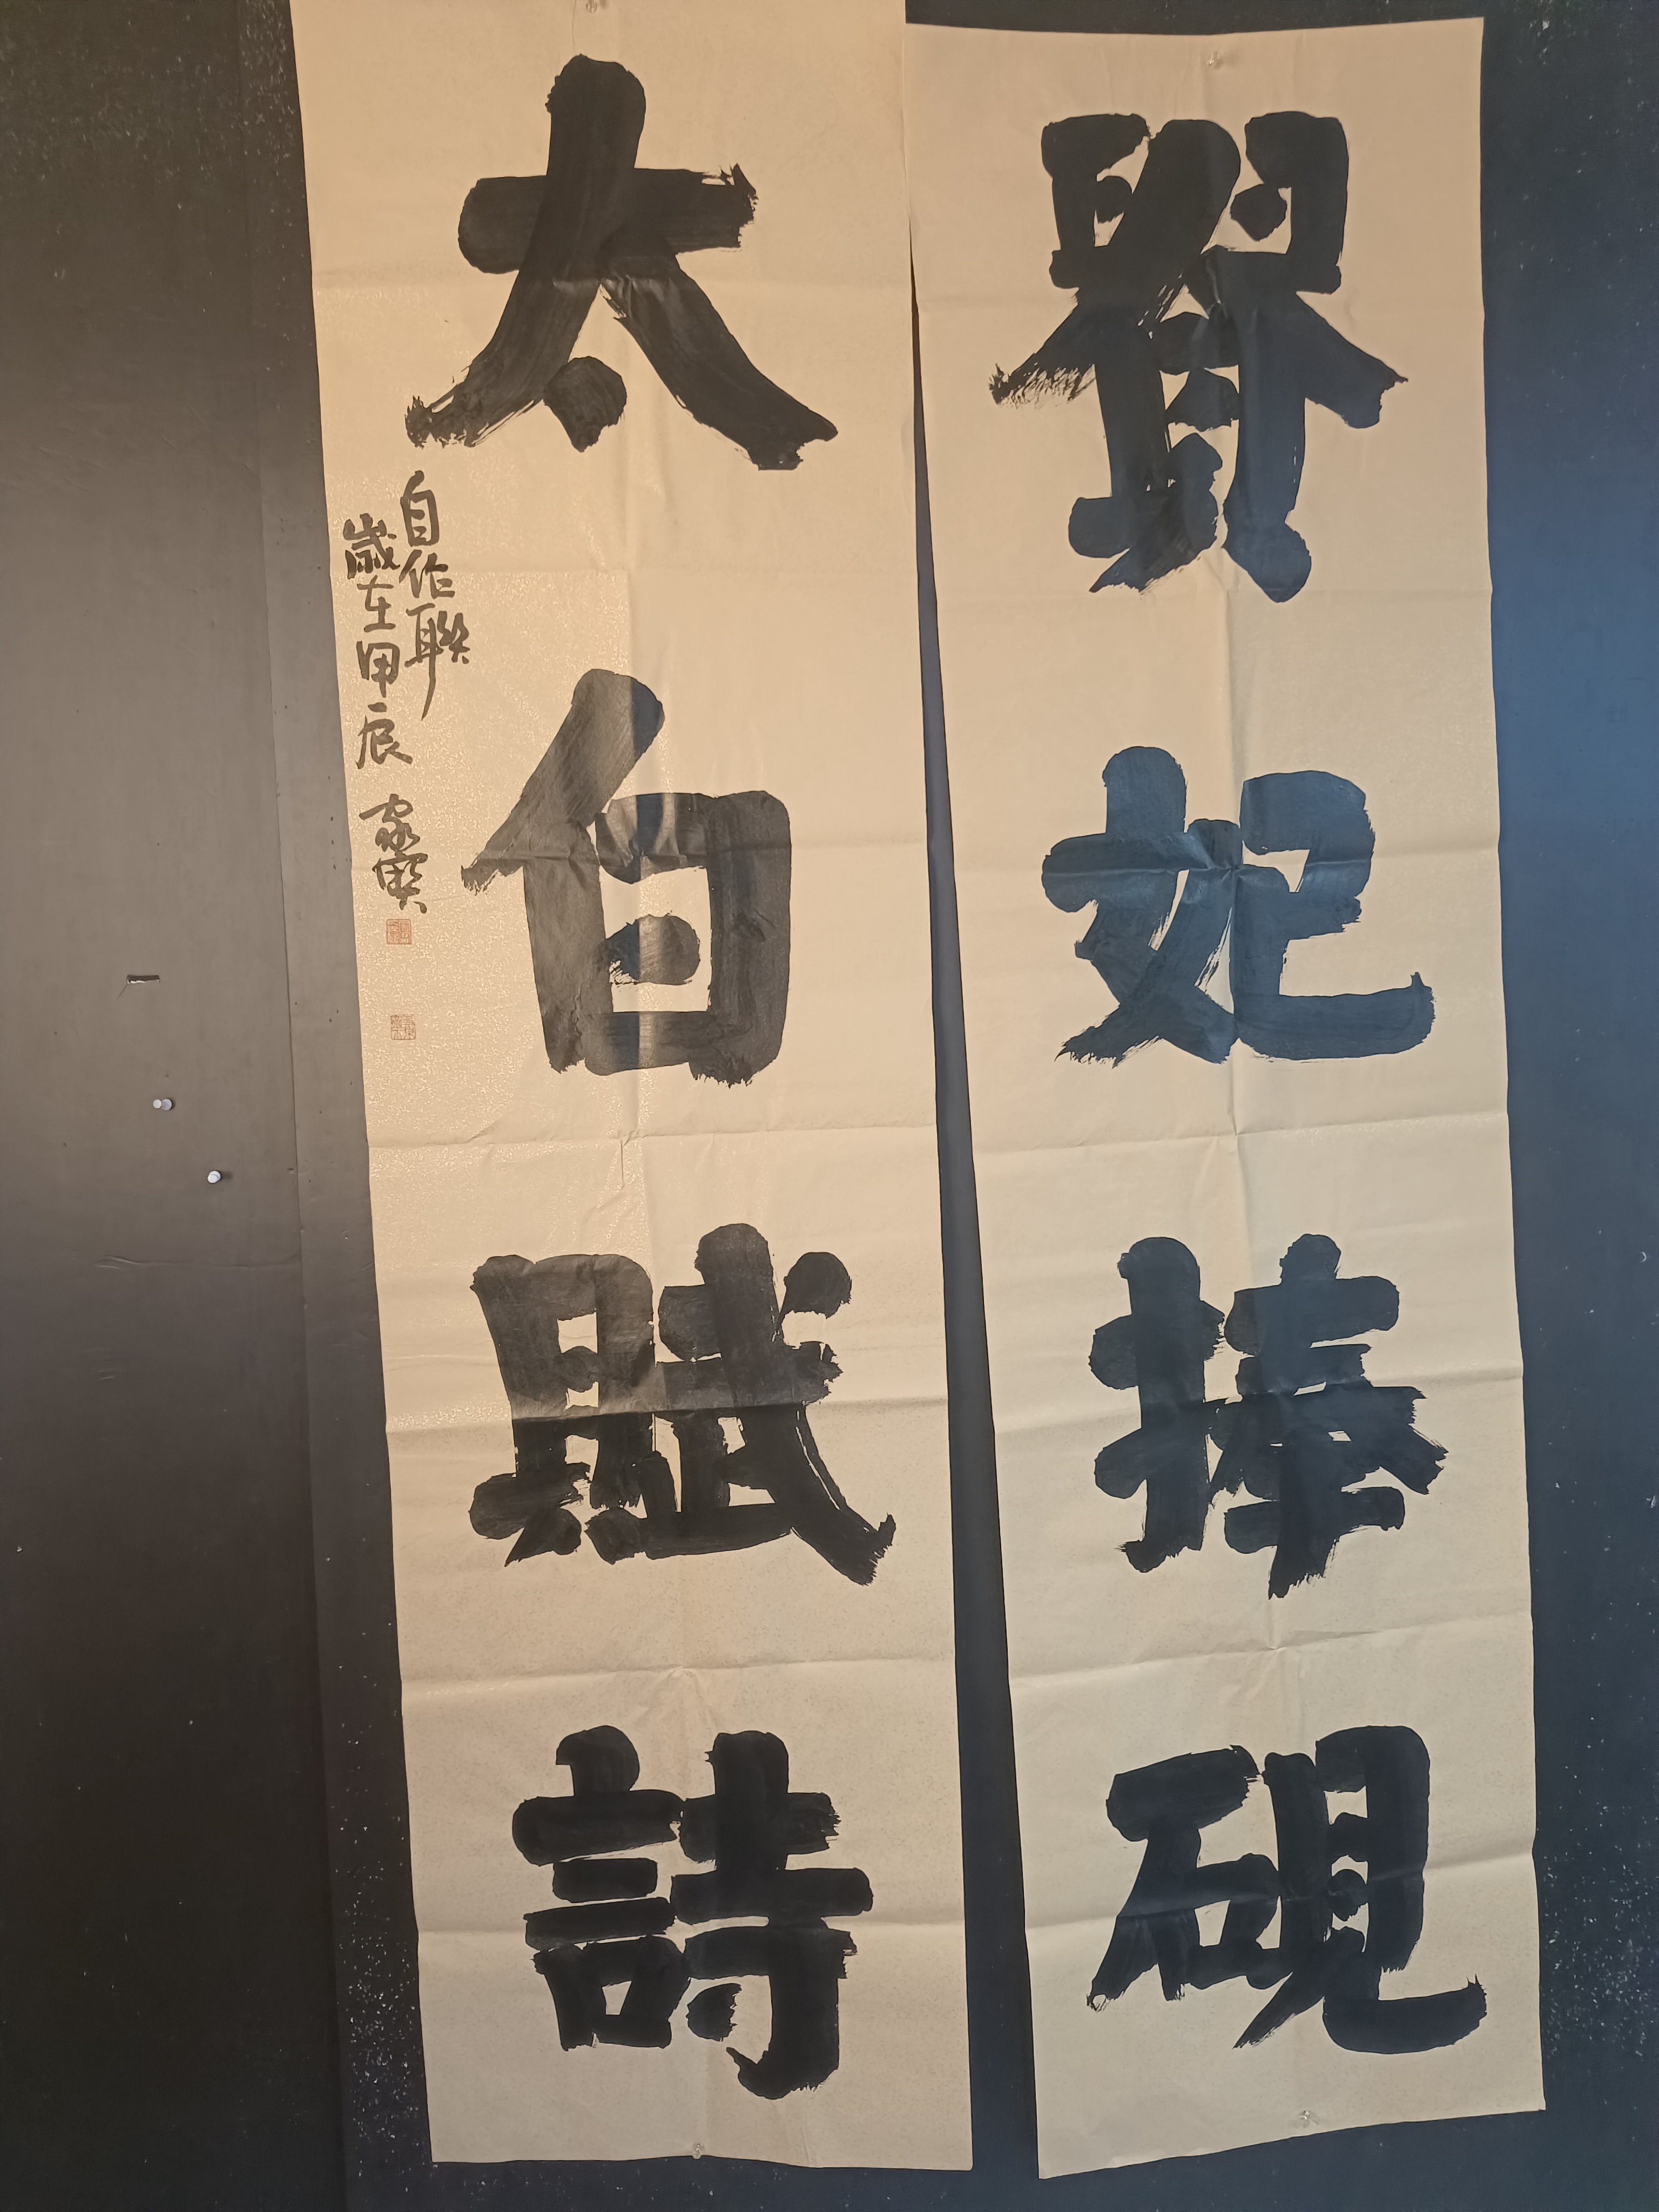 貴妃捧硯
太白賦詩
自作聯
歲在甲辰